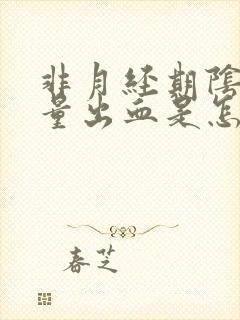 非月经期陰
量出血是怎
春芝